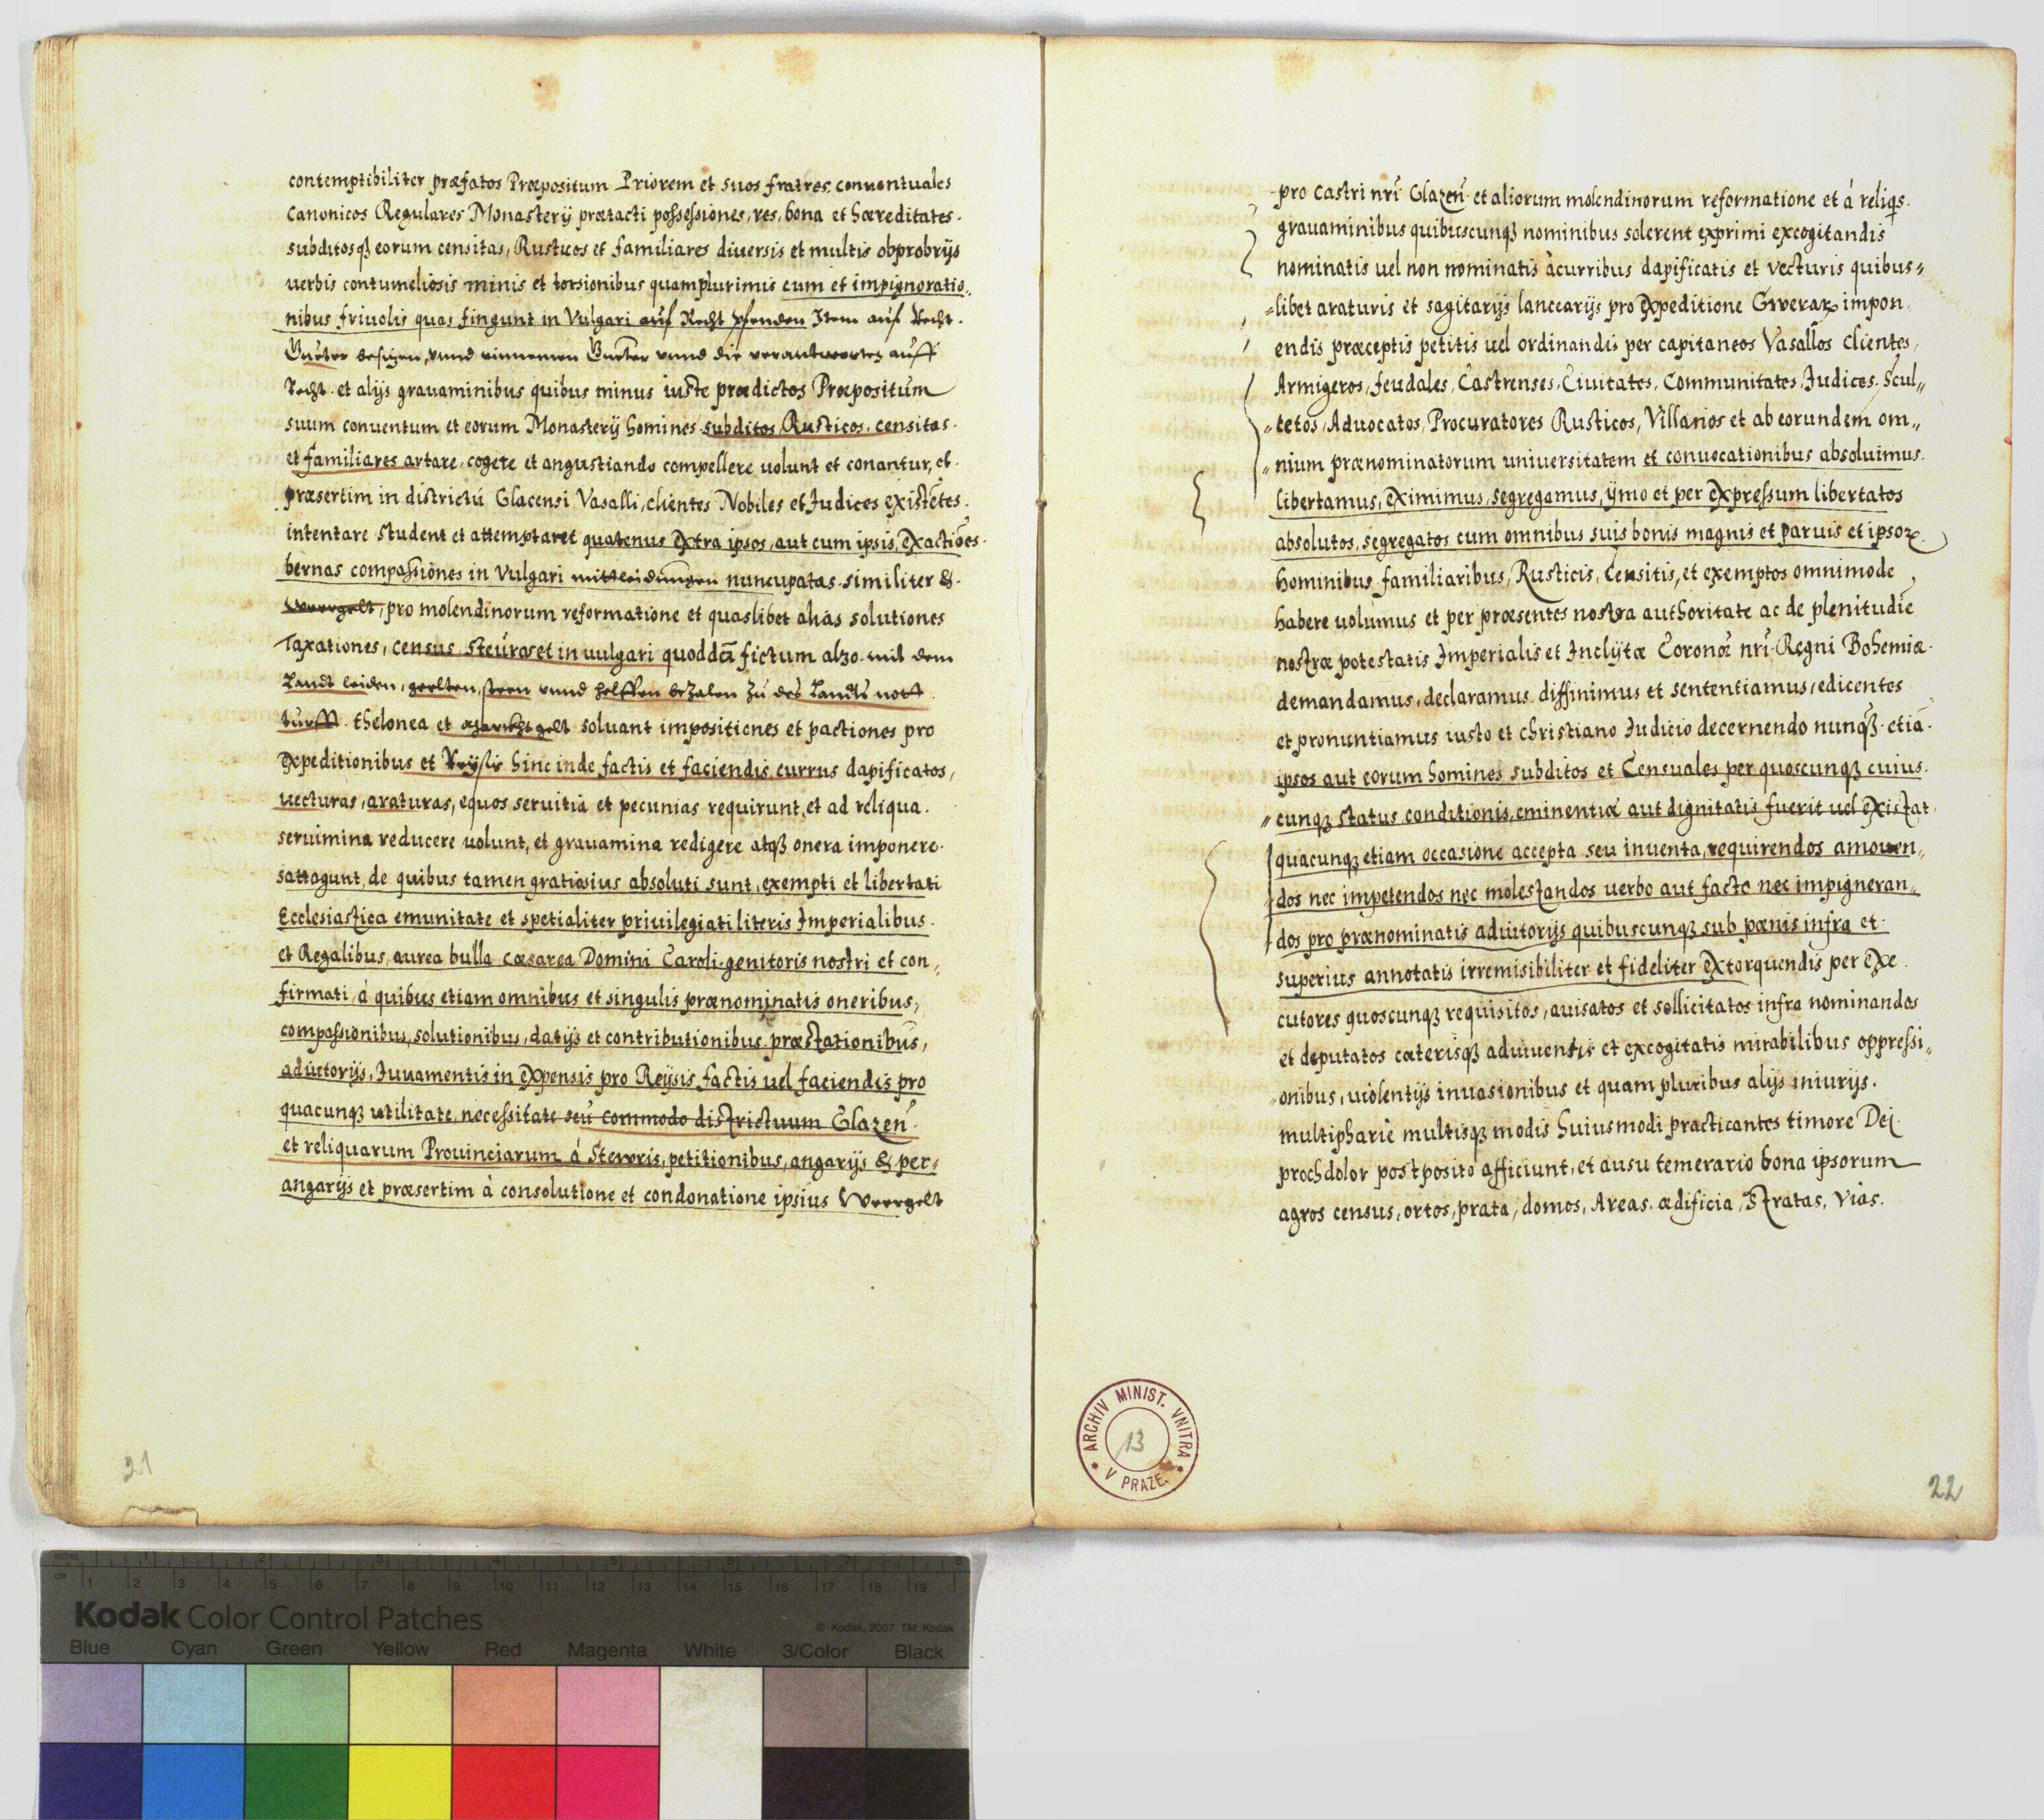 contemptibiliter præfatos Præpositum Priorem et suos fratres conuentuales
Canonicos Regulares Monasterÿ prætacti possessiones, res, bona et hæreditates.
subditosqꝫ eorum censitas, Rusticos et familiares diuersis et multis obprobrÿs
uerbis contumeliosis minis et torsionibus quamplurimis cum et impignoratio„
nibus friuolis quas fingunt in Vulgari auf Recht pfenden Item auf Recht.
Gueter besizen, vnnd einnemen Gueter vnnd die verantworten auff
Recht. et alÿs grauaminibus quibus minus iuste prædictos Præpositum
suum conuentum et eorum Monasterÿ homines subditos Rusticos, censitas.
et familiares artare, cogere et angustiando compellere uolunt et conantur, et.
præsertim in districtu Glacensi Vasalli, clientes Nobiles et Judices existētes.
intentare student et attemptaret quatenus extra ipsos, aut cum ipsis, exactiões.
bernas compassiones in Vulgari mitleidungen nuncupatas. similiter &.
Weergelt, pro molendinorum reformatione et quaslibet alias solutiones
Taxationes, census steuras et in uulgari quoddā fictum alzo. mit dem
Landt leiden, geelten, steen vnnd helffen bezalen zu des Landts nott
turfft. thelonea et soluant impositiones et pactiones pro
expeditionibus et Reÿsis hinc inde factis et faciendis, currus dapificatos,
uecturas, araturas, equos seruitia et pecunias requirunt, et ad reliqua.
seruimina reducere uolunt, et grauamina redigere atqꝫ onera imponere.
sattagunt, de quibus tamen gratiosius absoluti sunt, exempti et libertati
Ecclesiastica emunitate et spetialiter priuilegiati literis Imperialibus.
et Regalibus, aurea bulla cæsarea Domini Caroli genitoris nostri et con„
firmati, à quibus etiam omnibus et singulis prænominatis oneribus,
compassionibus, solutionibus, datÿs et contributionibus præstationibus,
adiutorÿs, Iuuamentis in expensis pro Reÿsis factis uel faciendis pro
quacunqꝫ utilitate, necessitate seu commodo districtuum Glazeñ.
et reliquarum Prouinciarum à Stewris, petitionibus, angarÿs & per„
angarÿs et præsertim à consolutione et condonatione ipsius Weergelt
21
pro castri nr̄i Glazeñ et aliorum molendinorum reformatione et à reliqs.
grauaminibus quibuscunqꝫ nominibus solerent exprimi excogitandis
nominatis uel non nominatis àcurribus dapificatis et vecturis quibus„
„libet araturis et sagitarÿs lancearÿs pro expeditione Gwerax impon
endis præceptis petitis uel ordinandis per capitaneos Vasallos Clientes,
Armigeros, feudales, Castrenses, Ciuitates, Communitates, Judices. Scul„
„tetos, Aduocatos, Procuratores Rusticos, Villanos et ab eorundem om„
„nium prænominatorum uniuersitatem et conuocationibus absoluimus.
libertamus, eximimus, segregamus, ÿmo et per expressum libertatos
absolutos, segregatos cum omnibus suis bonis magnis et paruis et ipsoꝝ
hominibus familiaribus, Rusticis, Censitis, et exemptos omnimode
habere uolumus et per præsentes nostra authoritate ac de plenitudīe
nostræ potestatis Imperialis et Inclÿtæ Coronæ nr̄i Regni Bohemiæ.
demandamus, declaramus diffinimus et sententiamus, edicentes
et pronuntiamus iusto et christiano Iudicio decernendo nunqꝫ etiā.
ipsos aut eorum homines subditos et Censuales per quoscunqꝫ cuius.
„cunqꝫ status conditionis, eminentiæ aut dignitatis fuerit uel existat.
quacunqꝫ etiam occasione accepta seu inuenta, requirendos amouen„
dos nec impetendos nec molestandos uerbo aut facto nec impigneran„
dos pro prænominatis adiutorÿs quibuscunqꝫ sub pœnis infra et.
superius annotatis irremisibiliter et fideliter extorquendis per exe
cutores quoscunqꝫ requisitos, auisatos et sollicitatos infra nominandos
et deputatos cæterisqꝫ adinuentis et excogitatis mirabilibus oppressi„
„onibus, uiolentÿs inuasionibus et quam pluribus alÿs iniurÿs.
multipharie multisqꝫ modis huiusmodi practicantes timore Dei.
prochdolor postposito afficiunt, et ausu temerario bona ipsorum
agros census, ortos, prata, domos, Areas. ædificia, Stratas, Vias.
ARCHIV MINIST. VNITRA
V PRAZE
13
22
inches 1 2 3 4 5 6 7 8
cm 1 2 3 4 5 6 7 8 9 10 11 12 13 14 15 16 17 18 19
Kodak Color Control Patches
© Kodak, 2007 TM: Kodak
Blue Cyan Green Yellow Red Magenta White 3/Color Black